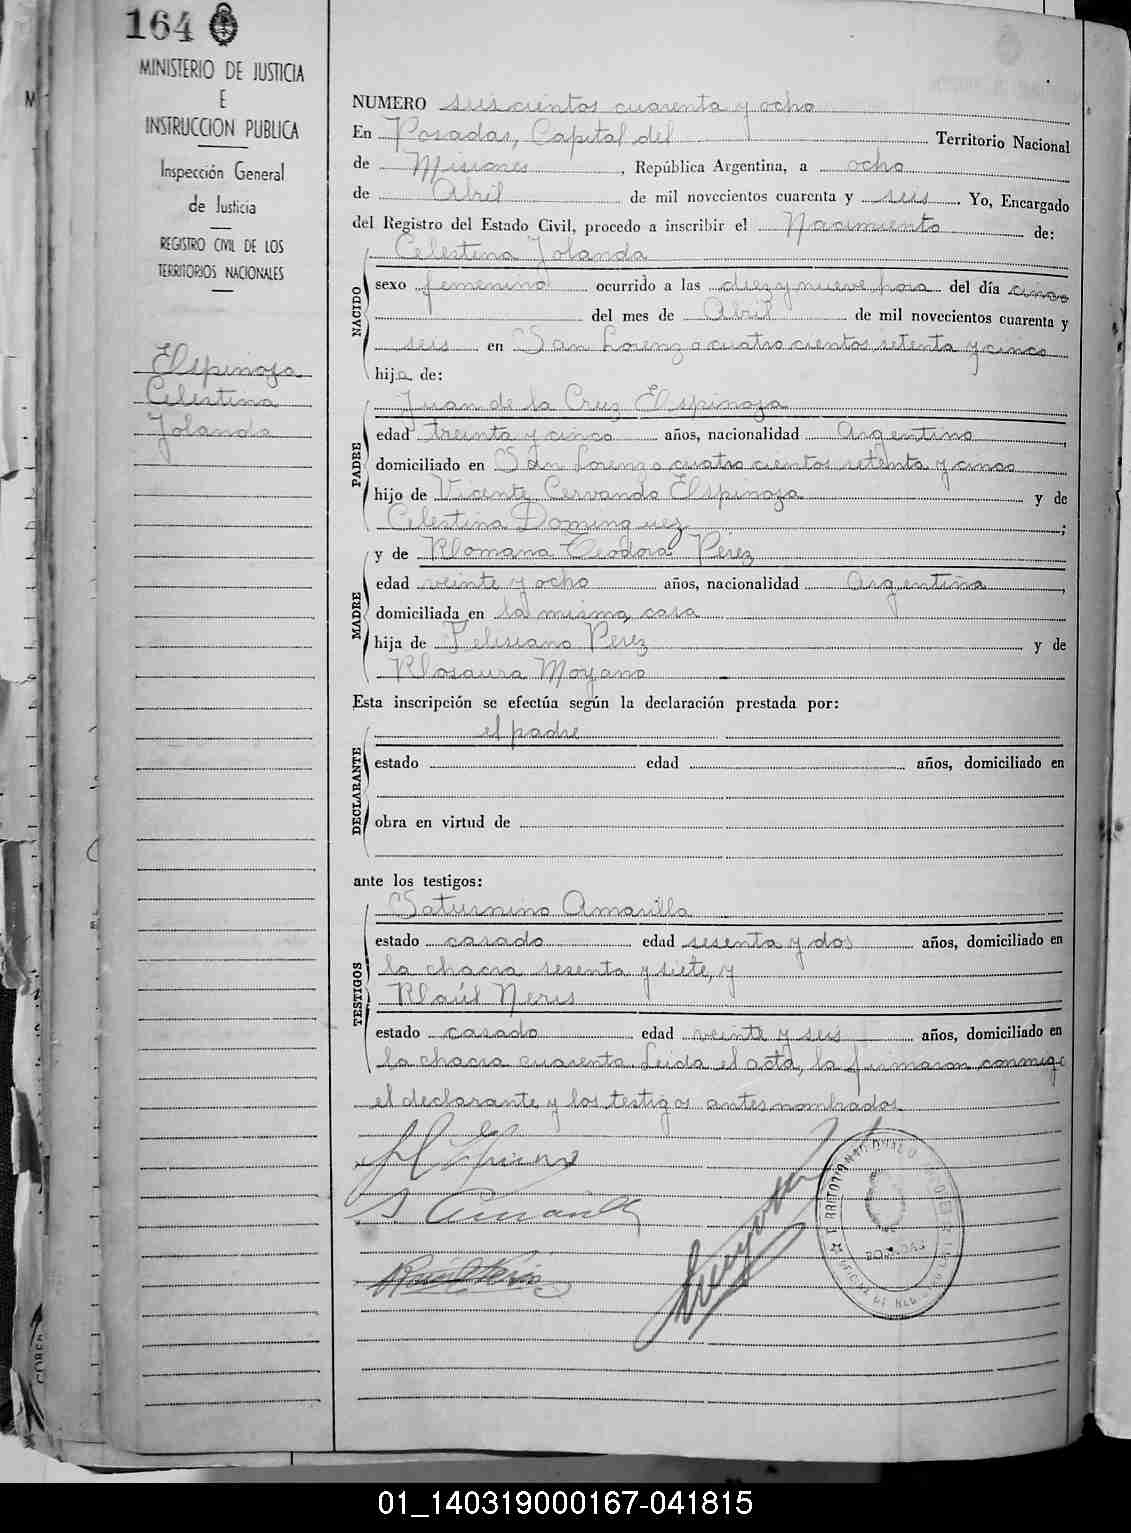 164
MINISTERIO DE JUSTICIA
E
INSTRUCCION PUBLICA
Inspección General
de Justicia
REGISTRO CIVIL DE LOS
TERRITORIOS NACIONALES
Espinoza
Celestina
Jolanda
NUMERO seiscientos cuarenta y ocho
En Posadas, Capital del Territorio Nacional
de Misiones, República Argentina, a ocho
de Abril de mil novecientos cuarenta y seis. Yo, Encargado
del Registro del Estado Civil, procedo a inscribir el Nacimiento de:
NACIDO
Celestina Jolanda
sexo femenino ocurrido a las diez y nueve hora del día cinco
del mes de Abril de mil novecientos cuarenta y
seis en San Lorenzo cuatro cientos setenta y cinco
hija de:
PADRE
Juan de la Cruz Espinoza
edad treinta y cinco años, nacionalidad Argentino,
domiciliado en San Lorenzo cuatro cientos setenta y cinco
hijo de Vicente Cervando Espinoza y de
Celestina Dominguez;
y de Romana Teodora Pérez
MADRE
edad veinte y ocho años, nacionalidad Argentina,
domiciliada en la misma casa
hija de Felisiano Perez y de
Rosaura Moyano
Esta inscripción se efectúa según la declaración prestada por:
DECLARANTE
el padre
estado edad años, domiciliado en
obra en virtud de
ante los testigos:
TESTIGOS
Saturnino Amarilla
estado casado edad sesenta y dos años, domiciliado en
la chacra sesenta y siete, y
Raúl Neris
estado casado edad veinte y seis años, domiciliado en
la chacra cuarenta. Leida el acta, la firmaron conmigo
el declarante y los testigos antes nombrados
J Espinoza
S. Amarilla
Raúl Neris
TERRITORIO NACIONAL DE MISIONES
POSADAS
OFICINA DE REGISTRO CIVIL
01_140319000167-041815